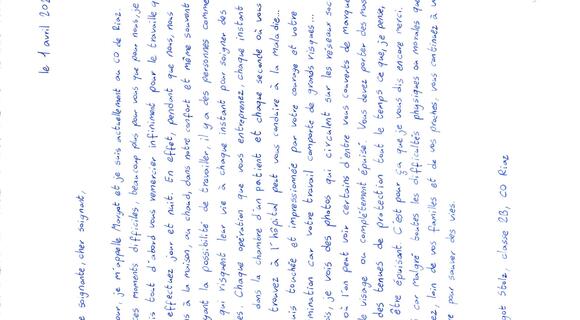 le 1 avril 202
soignante, cher soignant,
our, je m'appelle Margot et je suis actuellement au CO de Riaz
ces moments difficiles, beaucoup plus pour vous que pour nous, je
is tout d'abord vous remercier infiniment pour le travaille q
effectuez jour et nuit. En effet, pendant que nous, nous
s à la maison, au chaud, dans notre confort et même souvent
yant la possibilité de travailler, il y a des personnes comme
qui risquent leur vie à chaque instant pour soigner des
s. Chaque opération que vous entreprenez, chaque instant
dans la chambre d'un patient et chaque seconde où vous
trouvez à l'hôpital peut vous conduire à la maladie...
uis touchée et impressionnée par votre courage et votre
mination car votre travail comporte de grands risques...
is, je vois des photos qui circulent sur les réseaux soc
où l'on peut voir certains d'entre vous couverts de marque
le visage ou complètement épuisé. Vous devez porter des mas
des tenues de protection tout le temps ce que, je pense,
être épuisant. C'est pour ça que je vous dis encore merci.
i car malgré toutes les difficultés physiques ou morales que
ez, loin de vos familles et de vos proches, vous continuez à v
re pour sauver des vies.
got Stolz, classe 2B, CO Riaz